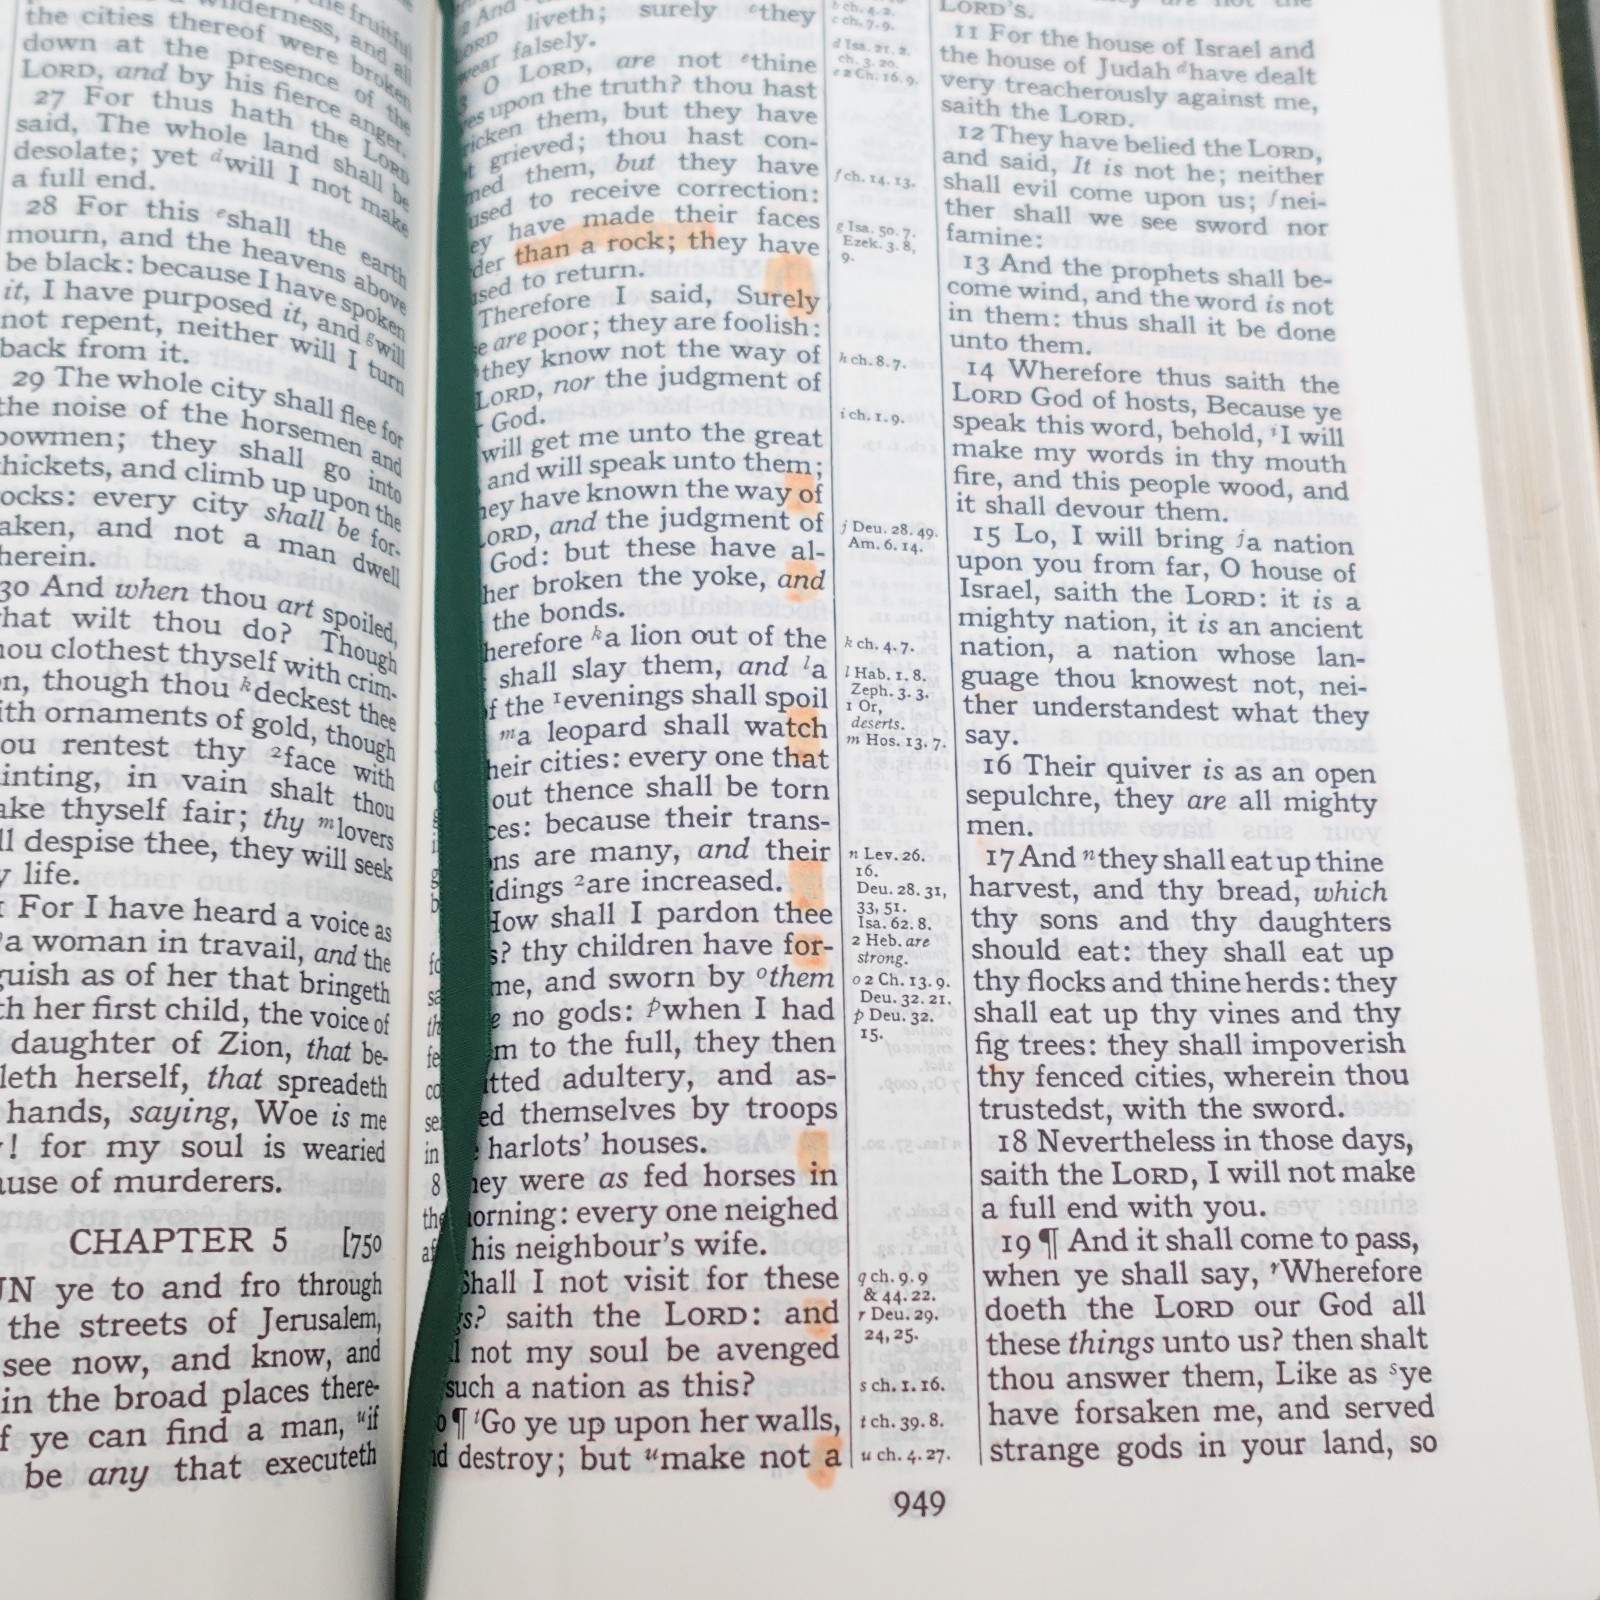 wilderness, and all
the cities thereof were broken
down at the presence of the
LORD, and by his fierce anger.
27 For thus hath the LORD
said, The whole land shall be
desolate; yet dwill I not make
a full end.
28 For this eshall the earth
mourn, and the heavens above
be black: because I have spoken
it, I have purposed it, and gwill
not repent, neither will I turn
back from it.
29 The whole city shall flee for
the noise of the horsemen and
bowmen; they shall go into
thickets, and climb up upon the
ocks: every city shall be for-
aken, and not a man dwell
herein.
30 And when thou art spoiled,
hat wilt thou do? Though
hou clothest thyself with crim-
on, though thou kdeckest thee
ith ornaments of gold, though
ou rentest thy 2face with
inting, in vain shalt thou
ake thyself fair; thy mlovers
ll despise thee, they will seek
y life.
For I have heard a voice as
a woman in travail, and the
guish as of her that bringeth
th her first child, the voice of
daughter of Zion, that be-
leth herself, that spreadeth
hands, saying, Woe is me
! for my soul is wearied
use of murderers.
CHAPTER 5 [750
UN ye to and fro through
the streets of Jerusalem,
see now, and know, and
in the broad places there-
f ye can find a man, uif
be any that executeth
2 And
ORD liveth; surely cthey
wear falsely.
3 O LORD, are not ethine
es upon the truth? thou hast
ricken them, but they have
t grieved; thou hast con-
med them, but they have
used to receive correction:
ey have made their faces
der than a rock; they have
used to return.
Therefore I said, Surely
e are poor; they are foolish:
they know not the way of
LORD, nor the judgment of
r God.
will get me unto the great
and will speak unto them;
hey have known the way of
LORD, and the judgment of
God: but these have al-
her broken the yoke, and
the bonds.
herefore ka lion out of the
shall slay them, and la
f the 1evenings shall spoil
ma leopard shall watch
heir cities: every one that
out thence shall be torn
ces: because their trans-
ns are many, and their
idings 2are increased.
How shall I pardon thee
s? thy children have for-
me, and sworn by othem
e no gods: pwhen I had
m to the full, they then
itted adultery, and as-
ed themselves by troops
harlots' houses.
hey were as fed horses in
orning: every one neighed
his neighbour's wife.
Shall I not visit for these
gs? saith the LORD: and
l not my soul be avenged
such a nation as this?
0 ¶ tGo ye up upon her walls,
nd destroy; but umake not a
b ch. 4. 2.
c ch. 7. 9.
d Isa. 21. 2.
ch. 3. 20.
e 2 Ch. 16. 9.
f ch. 14. 13.
g Isa. 50. 7.
Ezek. 3. 8,
9.
h ch. 8. 7.
i ch. 1. 9.
j Deu. 28. 49.
Am. 6. 14.
k ch. 4. 7.
l Hab. 1. 8.
Zeph. 3. 3.
1 Or,
deserts.
m Hos. 13. 7.
n Lev. 26.
16.
Deu. 28. 31,
33, 51.
Isa. 62. 8.
2 Heb. are
strong.
o 2 Ch. 13. 9.
Deu. 32. 21.
p Deu. 32.
15.
q ch. 9. 9
& 44. 22.
r Deu. 29.
24, 25.
s ch. 1. 16.
t ch. 39. 8.
u ch. 4. 27.
LORD'S.
11 For the house of Israel and
the house of Judah dhave dealt
very treacherously against me,
saith the LORD.
12 They have belied the LORD,
and said, It is not he; neither
shall evil come upon us; fnei-
ther shall we see sword nor
famine:
13 And the prophets shall be-
come wind, and the word is not
in them: thus shall it be done
unto them.
14 Wherefore thus saith the
LORD God of hosts, Because ye
speak this word, behold, iI will
make my words in thy mouth
fire, and this people wood, and
it shall devour them.
15 Lo, I will bring ja nation
upon you from far, O house of
Israel, saith the LORD: it is a
mighty nation, it is an ancient
nation, a nation whose lan-
guage thou knowest not, nei-
ther understandest what they
say.
16 Their quiver is as an open
sepulchre, they are all mighty
men.
17 And nthey shall eat up thine
harvest, and thy bread, which
thy sons and thy daughters
should eat: they shall eat up
thy flocks and thine herds: they
shall eat up thy vines and thy
fig trees: they shall impoverish
thy fenced cities, wherein thou
trustedst, with the sword.
18 Nevertheless in those days,
saith the LORD, I will not make
a full end with you.
19 ¶ And it shall come to pass,
when ye shall say, rWherefore
doeth the LORD our God all
these things unto us? then shalt
thou answer them, Like as sye
have forsaken me, and served
strange gods in your land, so
949